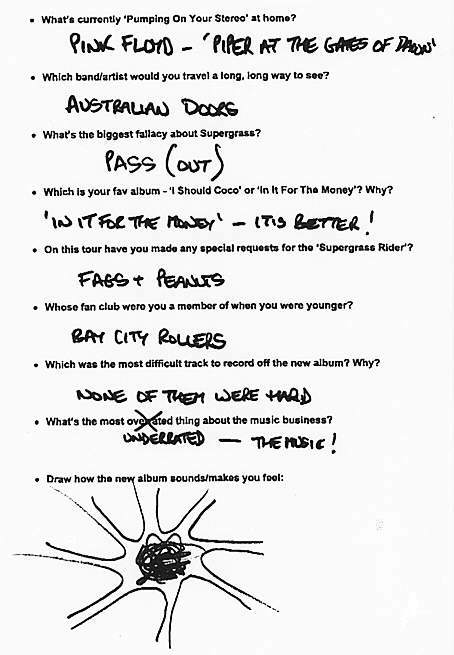 • What's currently 'Pumping On Your Stereo' at home?
PINK FLOYD - 'PIPER AT THE GATES OF DAWN'
• Which band/artist would you travel a long, long way to see?
AUSTRALIAN DOORS
• What's the biggest fallacy about Supergrass?
PASS (OUT)
• Which is your fav album - 'I Should Coco' or 'In It For The Money'? Why?
'IN IT FOR THE MONEY' - IT IS BETTER!
• On this tour have you made any special requests for the 'Supergrass Rider'?
FAGS + PEANUTS
• Whose fan club were you a member of when you were younger?
BAY CITY ROLLERS
• Which was the most difficult track to record off the new album? Why?
NONE OF THEM WERE HARD
• What's the most overrated thing about the music business?
UNDERRATED - THE MUSIC!
• Draw how the new album sounds/makes you feel: